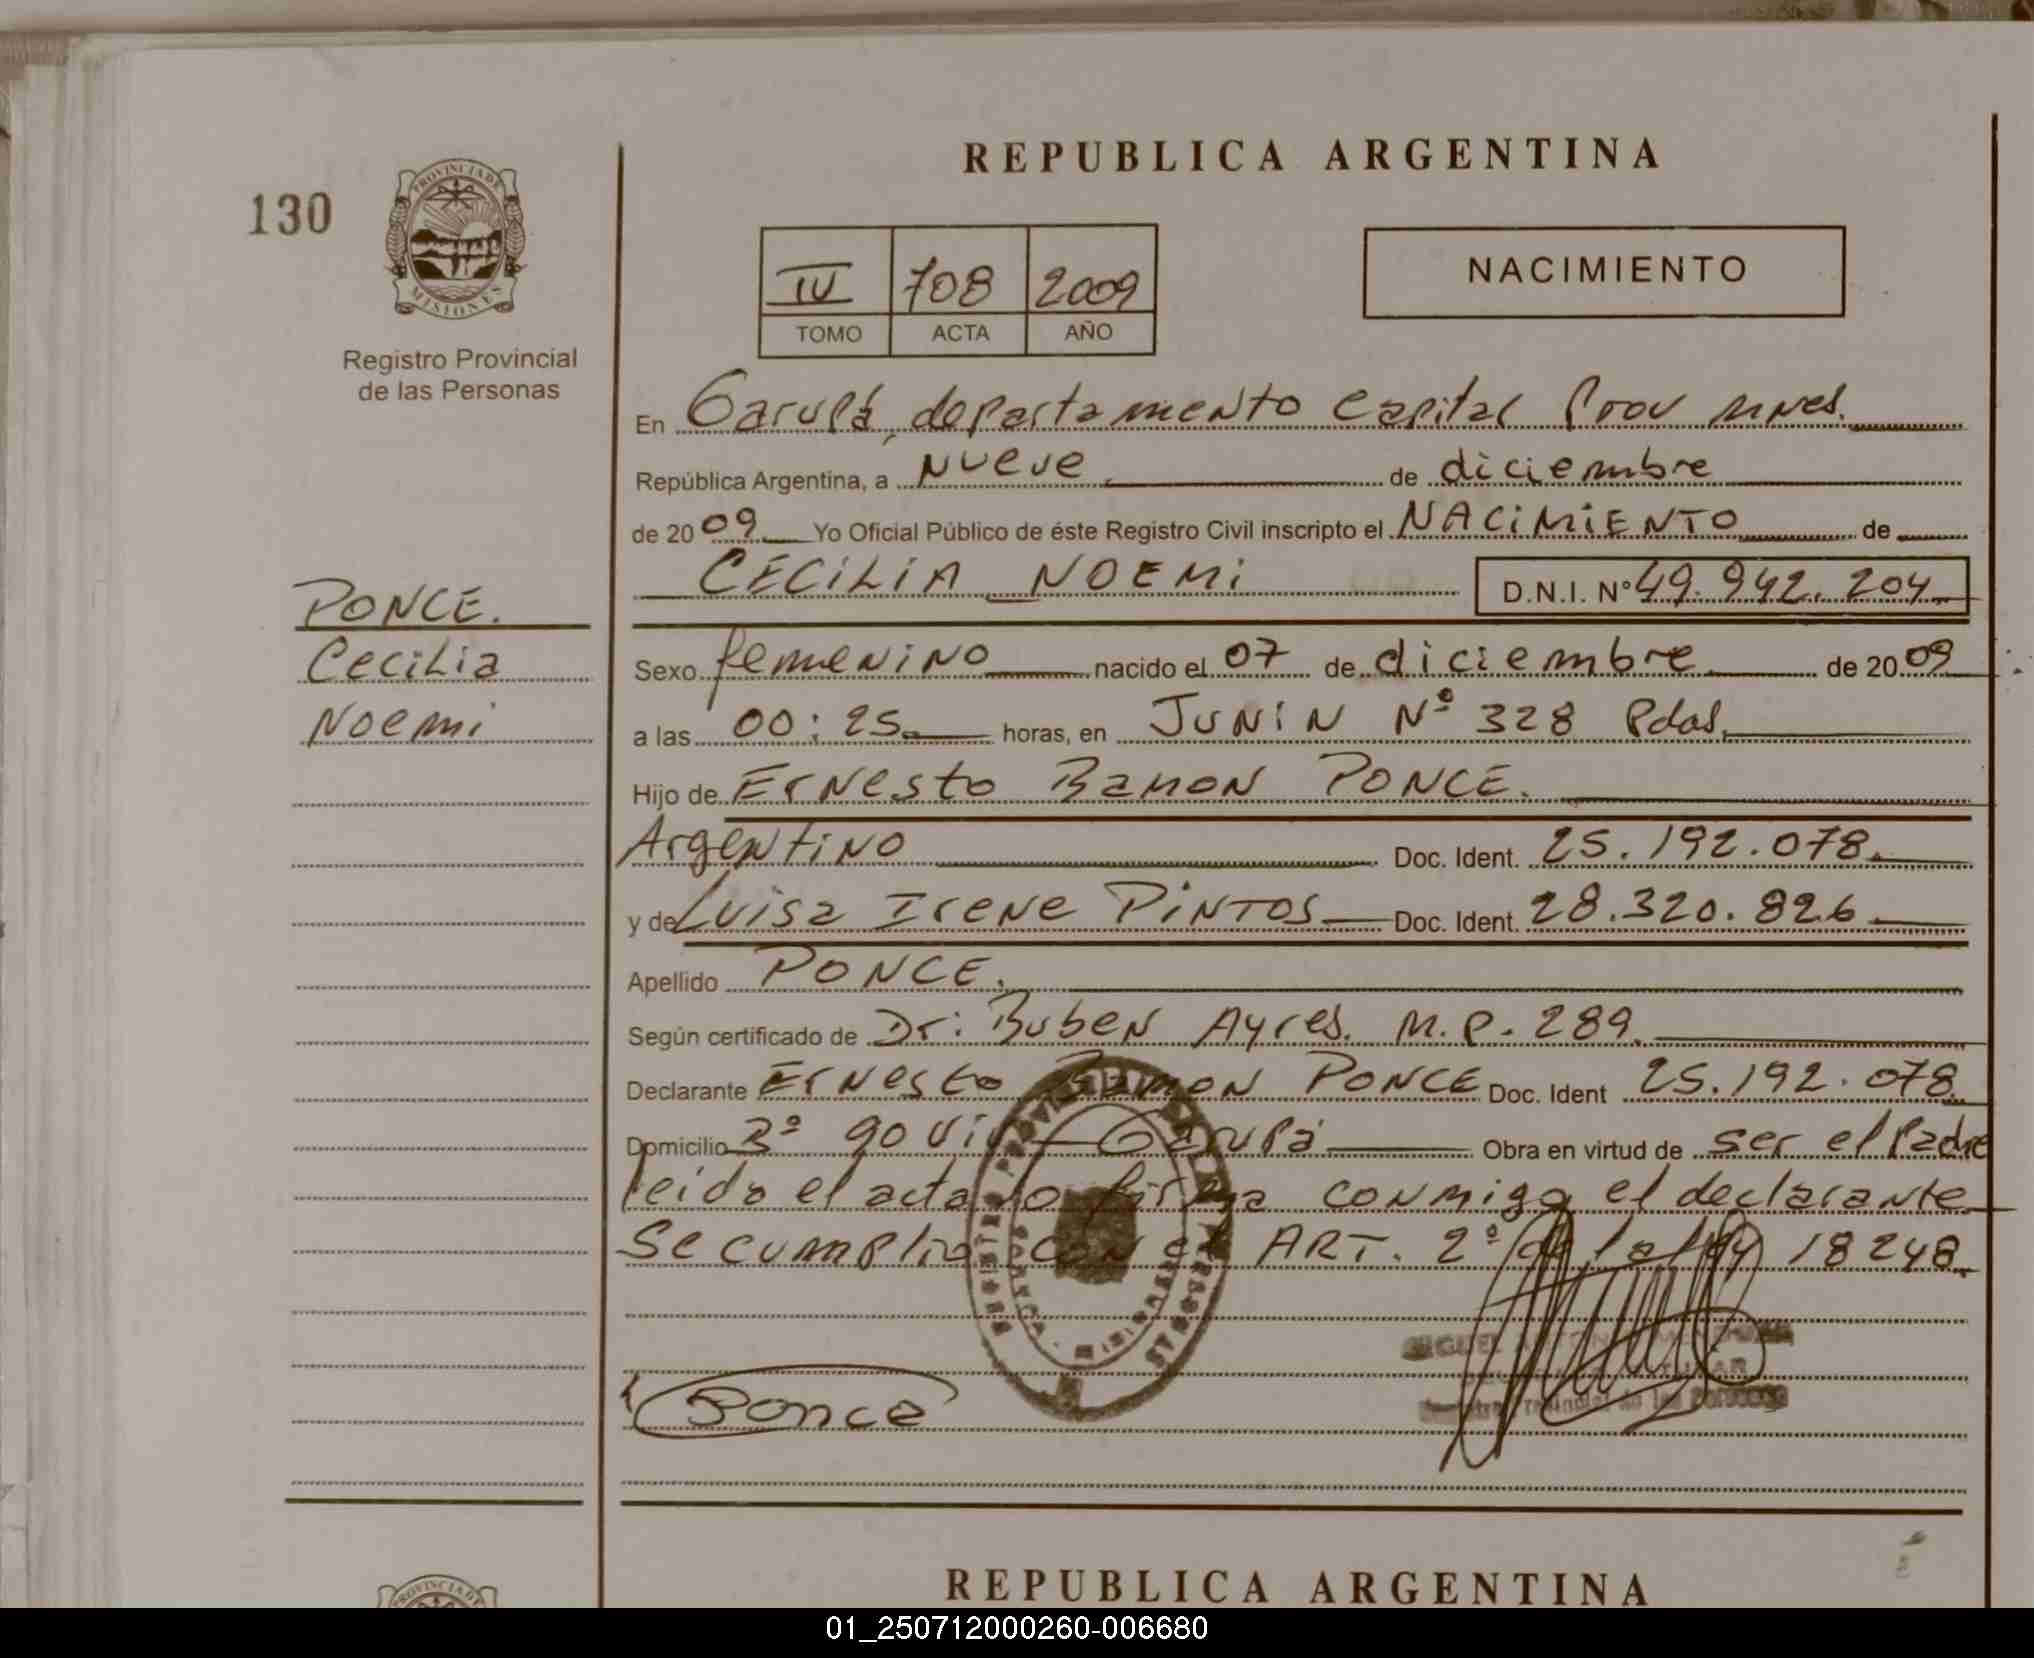 REPUBLICA ARGENTINA
130
PROVINCIA DE
MISIONES
Registro Provincial
de las Personas
IV 708 2009
TOMO ACTA AÑO
NACIMIENTO
En Garupá, departamento Capital Prov Mnes.
República Argentina, a Nueve de diciembre
de 2009 Yo Oficial Público de éste Registro Civil inscripto el NACIMIENTO de
CECILIA NOEMI D.N.I. Nº 49.942.204
PONCE.
Cecilia
Noemi
Sexo femenino nacido el 07 de diciembre de 2009
a las 00:25 horas, en JUNIN Nº 328 Pdas.
Hijo de Ernesto Ramon PONCE.
Argentino Doc. Ident. 25.192.078.
y de Luisa Irene PINTOS Doc. Ident. 28.320.826
Apellido PONCE.
Según certificado de Dr: Ruben Ayres. M.P. 289.
Declarante Ernesto Ramon PONCE Doc. Ident 25.192.078.
Domicilio Bº 90 Viv Garupá Obra en virtud de ser el Padre
leida el acta la firma conmigo el declarante
Se cumplio con el ART. 2º de la ley 18248.
REGISTRO PROVINCIAL DE LAS PERSONAS
MISIONES
Ponce
MIGUEL
Registro Provincial de las Personas
PROVINCIA DE
REPUBLICA ARGENTINA
01_250712000260-006680